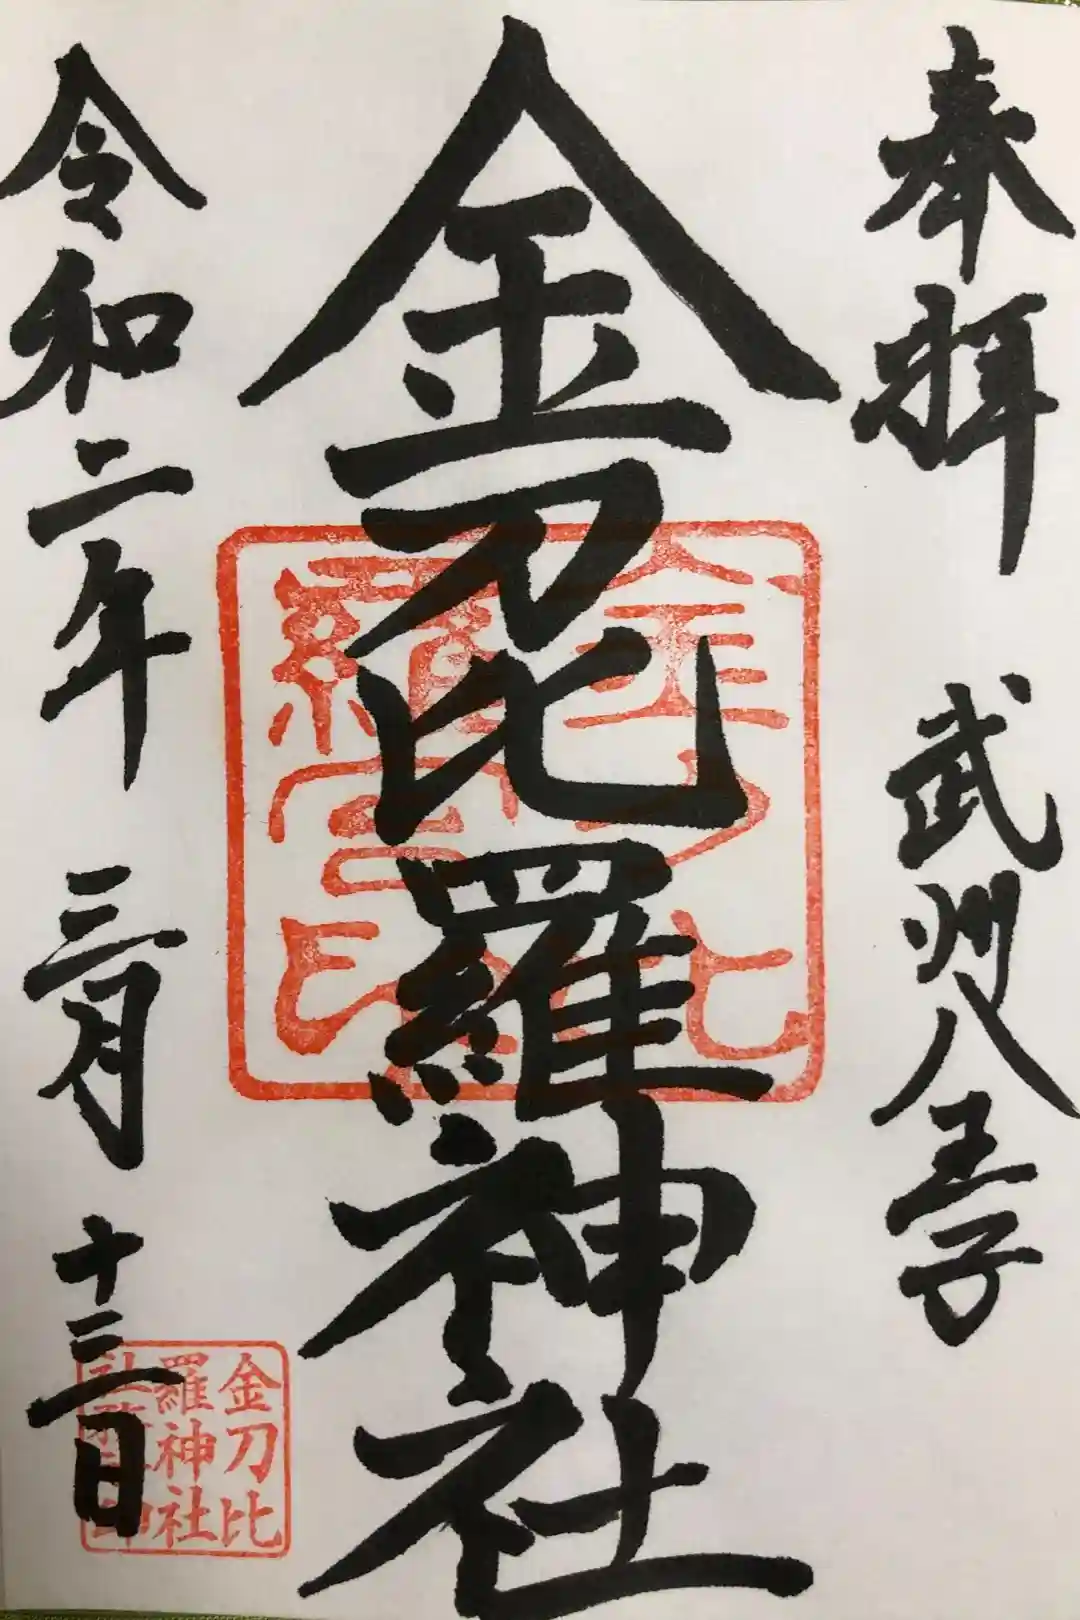 奉拝 武州八王子
金刀比羅神社
令和二年 三月 十三日
金刀比
羅宮印
金刀比
羅神社